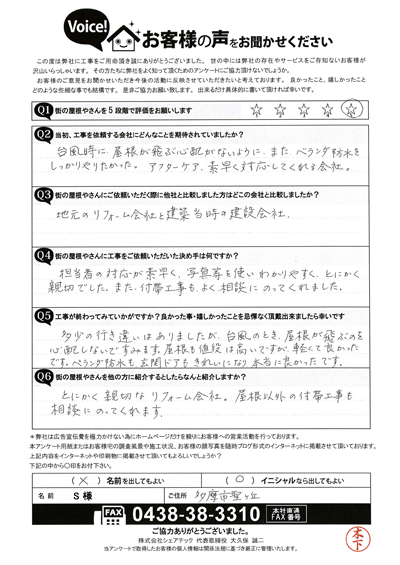 Voice!
お客様の声をお聞かせください
この度は弊社に工事をご用命頂き誠にありがとうございました。世の中には弊社の存在やサービスをご存知ないお客様が
沢山いらっしゃいます。その方たちに弊社をよく知って頂くためのアンケートにご協力頂けないでしょうか。
お客様のご意見をお聞かせいただき今後の活動に反映させていただきたいと考えております。良かったこと、嬉しかったこと
どのような些細な事でも結構です。是非ご協力お願い致します。出来るだけ具体的に書いて頂ければ幸いです。
Q1 街の屋根やさんを5段階で評価をお願いします
☆ ☆ ☆ ☆ ☆
Q2 当初、工事を依頼する会社にどんなことを期待されていましたか?
台風時に、屋根が飛ぶ心配がないように、また、ベランダ防水を
しっかりやりたかった。アフターケア、素早く対応してくれる会社。
Q3 街の屋根やさんにご依頼いただく際に他社と比較しました方はどこの会社と比較しましたか?
地元のリフォーム会社と建築当時の建設会社。
Q4 街の屋根やさんに工事をご依頼いただいた決め手は何ですか?
担当者の対応が素早く、写真等を使いわかりやすく、とにかく
親切でした。また、付帯工事も、よく相談にのってくれました。
Q5 工事が終わってみていかがですか?良かった事・嬉しかったことを忌憚なく頂戴出来ましたら幸いです
多少の行き違いはありましたが、台風のとき、屋根が飛ぶのを
心配しないですみます。屋根も値段は高いですが、軽くて良かった
です。ベランダ防水も、玄関ドアもきれいになり本当に良かったです。
Q6 街の屋根やさんを他の方に紹介するとしたらなんと紹介しますか?
とにかく親切なリフォーム会社。屋根以外の付帯工事も
相談にのってくれます。
*弊社は広告宣伝費を極力かけない為にホームページだけを頼りにお客様への営業活動を行っております。
本アンケート用紙またはお客様宅の調査風景や施工状況、お客様の顔写真を随時ブログ形式のインターネットに掲載させて頂いております。
上記内容をインターネットや印刷物に掲載させて頂いてもよろしいでしょうか?
下記の中から〇印をお付け下さい。
(×)名前を出してもよい (○)イニシャルなら出してもよい
名前 S様 ご住所 多摩市聖ヶ丘
FAX 0438-38-3310 本社直通 FAX番号
ご協力ありがとうございました。
株式会社シェアテック 代表取締役 大久保 誠二
当アンケートで取得したお客様の個人情報は関係法規に基づき厳正に管理いたします。
木下